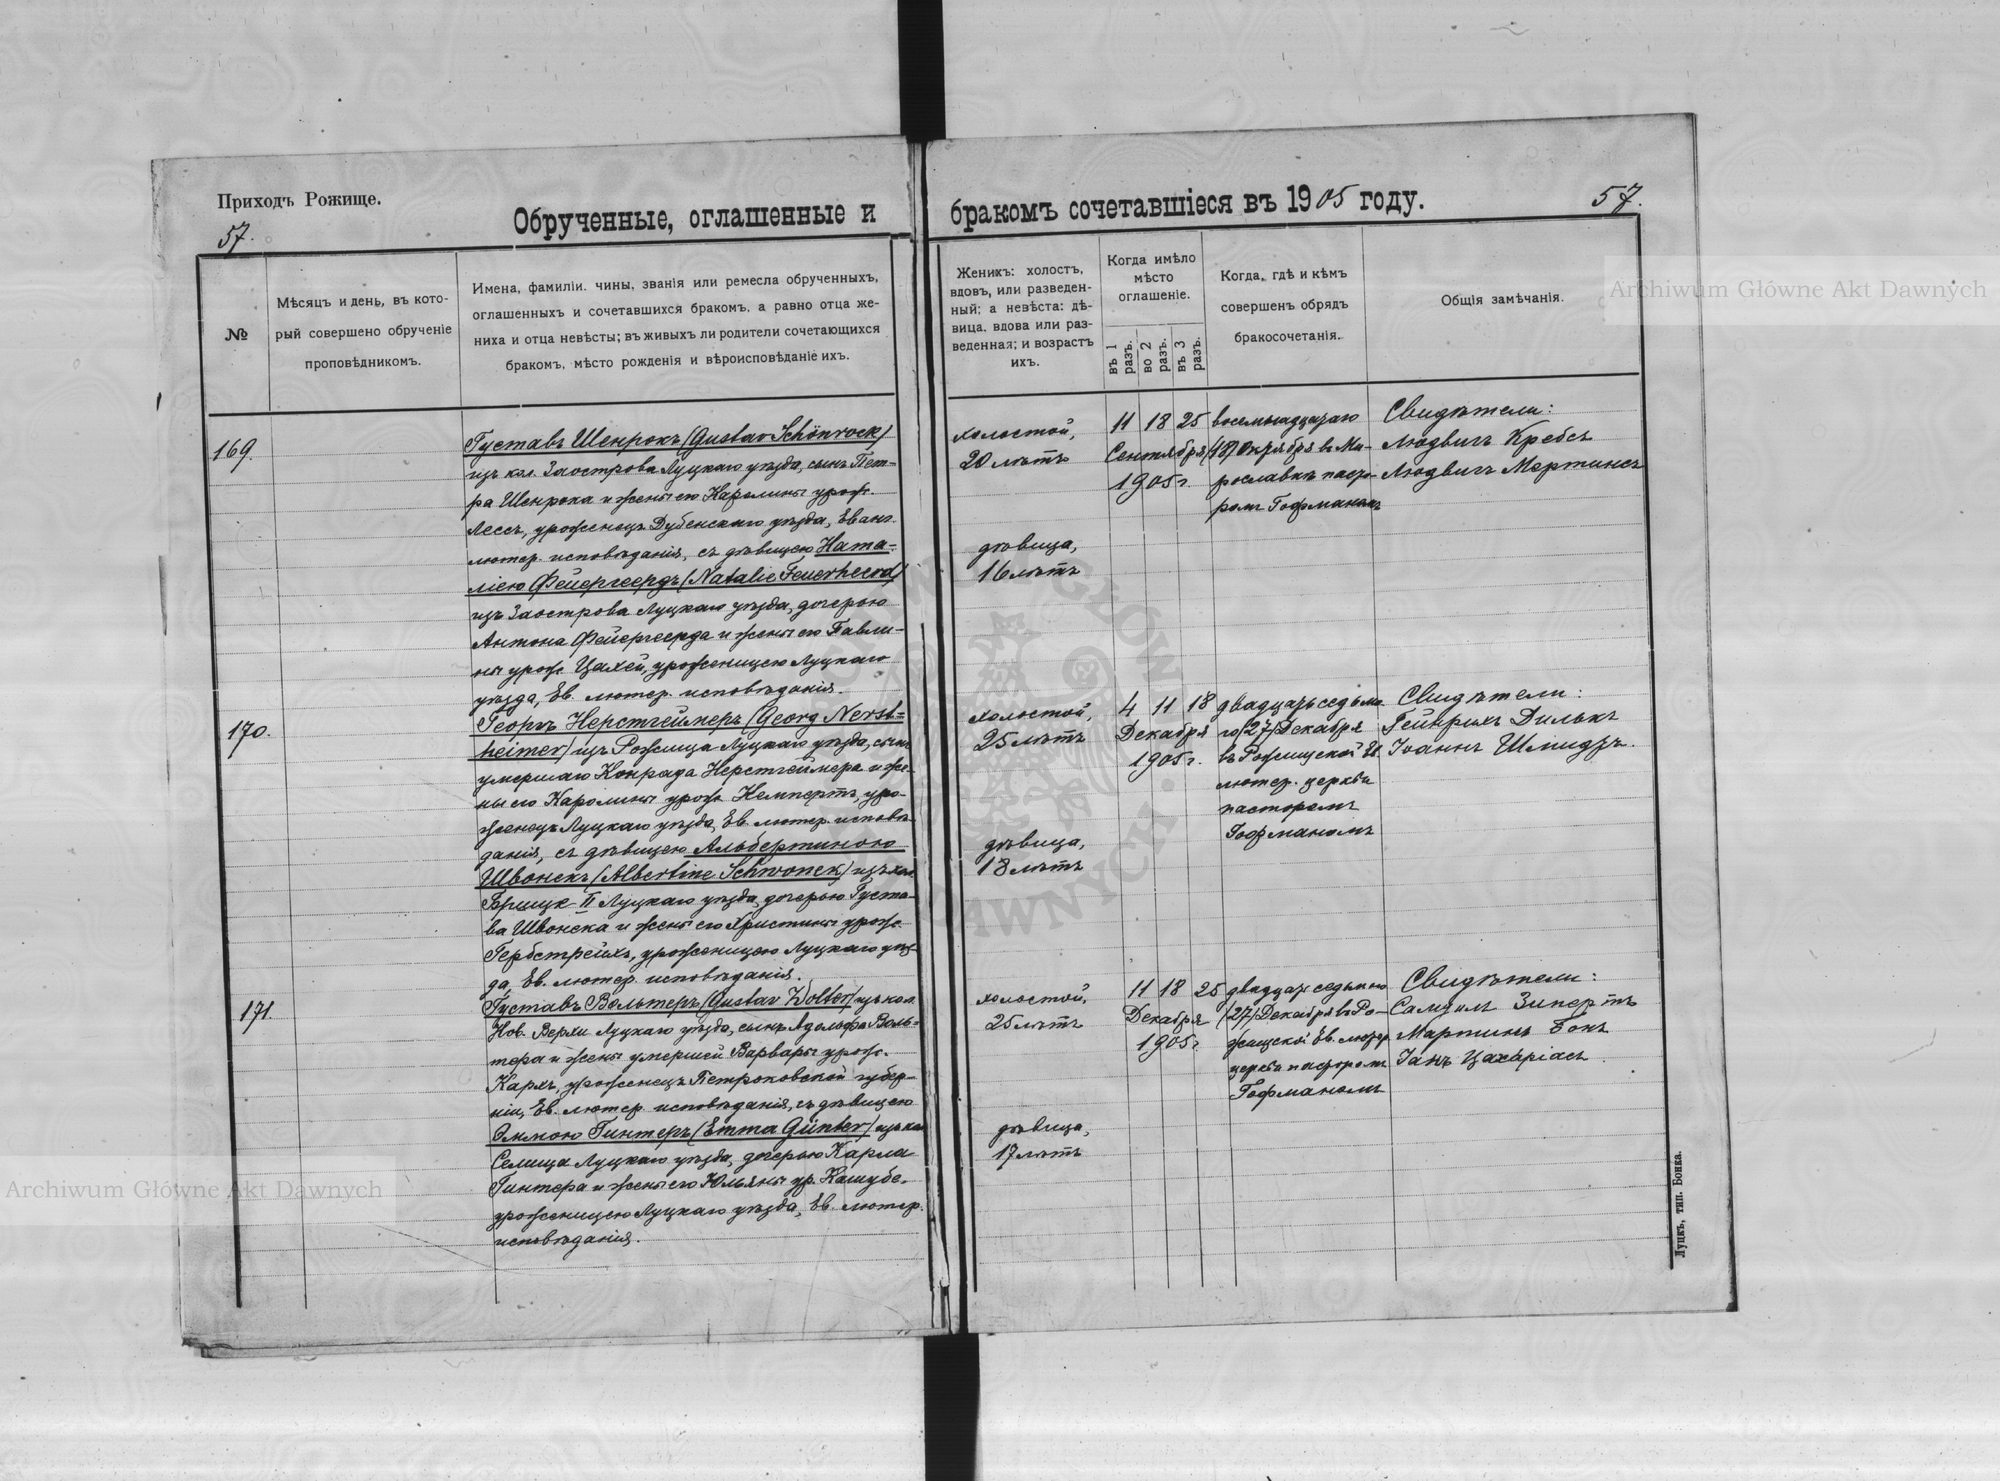 Приходъ Рожище.
57.
Обрученные, оглашенные и
бракомъ сочетавшіеся въ 1905 году.
57.
№
Мѣсяцъ и день, въ кото-
рый совершено обрученіе
проповѣдникомъ.
Имена, фамиліи. чины, званія или ремесла обрученныхъ,
оглашенныхъ и сочетавшихся бракомъ, а равно отца же-
ниха и отца невѣсты; въ живыхъ ли родители сочетающихся
бракомъ, мѣсто рожденія и вѣроисповѣданіе ихъ.
Женихъ: холостъ,
вдовъ, или разведен-
ный; а невѣста: дѣ-
вица, вдова или раз-
веденная; и возрастъ
ихъ.
Когда имѣло
мѣсто
оглашеніе.
въ 1
разъ.
во 2
разъ.
въ 3
разъ.
Когда, гдѣ и кѣмъ
совершенъ обрядъ
бракосочетанія.
Общія замѣчанія.
169.
Густавъ Шенрокъ (Gustav Schönrock)
изъ кол. Заострова Луцкаго уѣзда, сынъ Пет-
ра Шенрока и жены его Каролины урож.
Лессъ, уроженецъ Дубенскаго уѣзда, Еванг.
лютер. исповѣданія, съ дѣвицею Ната-
ліею Фейергеердъ (Natalie Feuerheerd)
изъ Заострова Луцкаго уѣзда, дочерью
Антона Фейергеерда и жены его Павли-
ны урож. Цахей, уроженицею Луцкаго
уѣзда, Ев. лютер. исповѣданія.
холостой,
20 лѣтъ
дѣвица,
16 лѣтъ
11 18 25
Сентября
1905 г.
восемнадцатаго
(18) Октября в Ми-
рославкѣ пасто-
ромъ Гофманомъ
Свидѣтели:
Людвигъ Кребсъ
Людвигъ Мертинсъ
170.
Георгъ Нерстгеймеръ (Georg Nerst=
heimer) изъ Рожища Луцкаго уѣзда, сынъ
умершаго Конрада Нерстгеймера и же-
ны его Каролины урож. Кемпертъ, уро-
женецъ Луцкаго уѣзда, Ев. лютер. исповѣ-
данія, съ дѣвицею Альбертиною
Швонекъ (Albertine Schwonek) изъ кол.
II Луцкаго уѣзда, дочерью Густа-
ва Швонека и жены его Христины урож.
Гербстрейхъ, уроженицею Луцкаго уѣз-
да, Ев. лютер. исповѣданія.
холостой,
25 лѣтъ
дѣвица,
18 лѣтъ
4 11 18
Декабря
1905 г.
двадцать седьма-
го (27) Декабря
въ Рожищской Ев.
лютер. церкви
пасторомъ
Гофманомъ
Свидѣтели:
Гейнрихъ Дилькъ
Іоаннъ Шмидтъ.
171.
Густавъ Вольтеръ (Gustav Wolter) изъ кол.
Нов. Верхи Луцкаго уѣзда, сынъ Адольфа Воль-
тера и жены умершей Варвары урож.
Кархъ, уроженецъ Петроковской губер-
ніи, Ев. лютер. исповѣданія, съ дѣвицею
Эммою Гинтеръ (Emma Günter) изъ кол.
Селища Луцкаго уѣзда, дочерью Карла
Гинтера и жены его Юльяны ур. Кашубе,
уроженицею Луцкаго уѣзда, Ев. лютер.
исповѣданія.
холостой,
25 лѣтъ
дѣвица,
17 лѣтъ
11 18 25
Декабря
1905 г.
двадцать седьмого
(27) Декабря въ Ро-
жищской Ев. лютер.
церкви пасторомъ
Гофманомъ
Свидѣтели:
Самуилъ Зипертъ
Мартинъ Бокъ
Іанъ Цахаріасъ
Луцкъ, тип. Бонка.
Archiwum Główne Akt Dawnych
Archiwum Główne Akt Dawnych